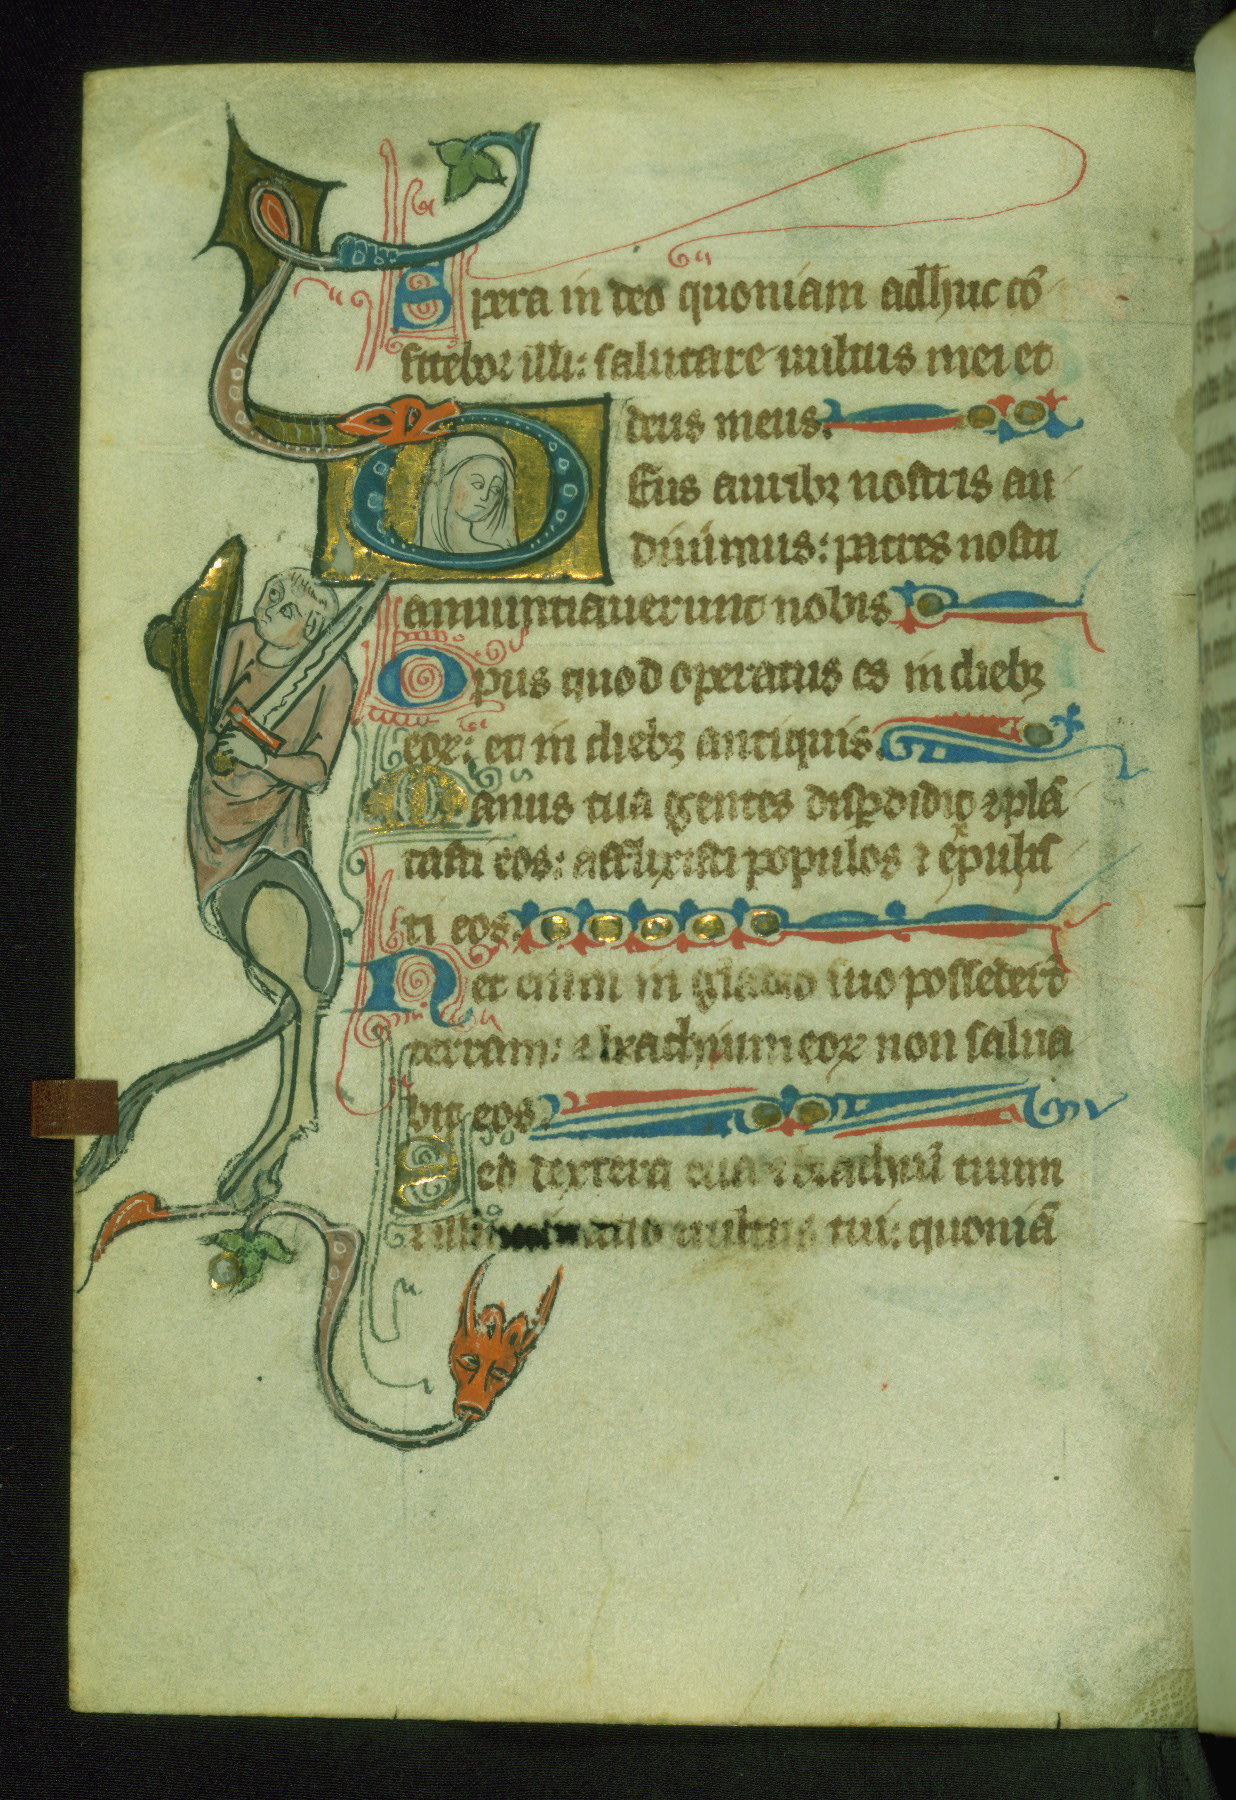 Spera in deo quoniam adhuc cō
fitebor illi: salutare uultus mei et
deus meus.
Deus auribꝫ nostris au
diuimus: patres nostri
annuntiauerunt nobis
Opus quod operatus es in diebꝫ
eoꝝ: et in diebꝫ antiquis.
Manus tua gentes disꝑdidit ⁊ plā
tasti eos: afflixisti populos ⁊ expulis
ti eos.
Nec enim in gladio suo possederūt
terram: ⁊ brachium eoꝝ non salua
bit eos.
Sed dextera tua ⁊ brachiū tuum
⁊ illuminatio uultus tui: quoniā